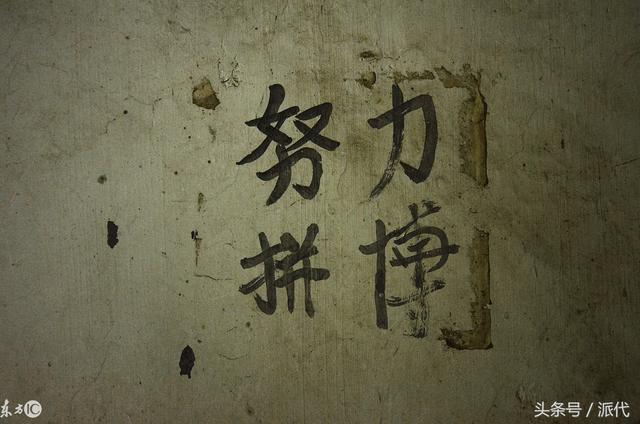 努力
拼博
东方IC
头条号 / 派代